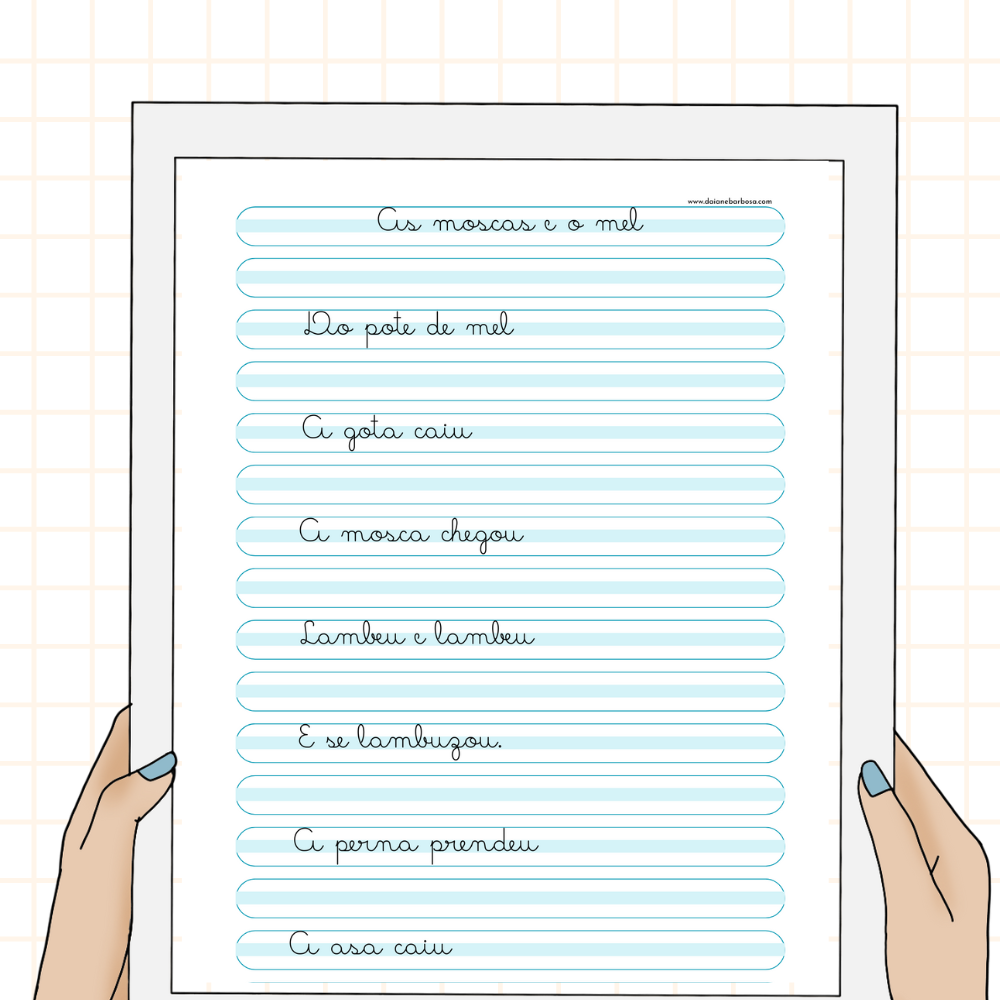 www.daianebarbosa.com
As moscas e o mel
Do pote de mel
A gota caiu
A mosca chegou
Lambeu e lambeu
E se lambuzou.
A perna prendeu
A asa caiu